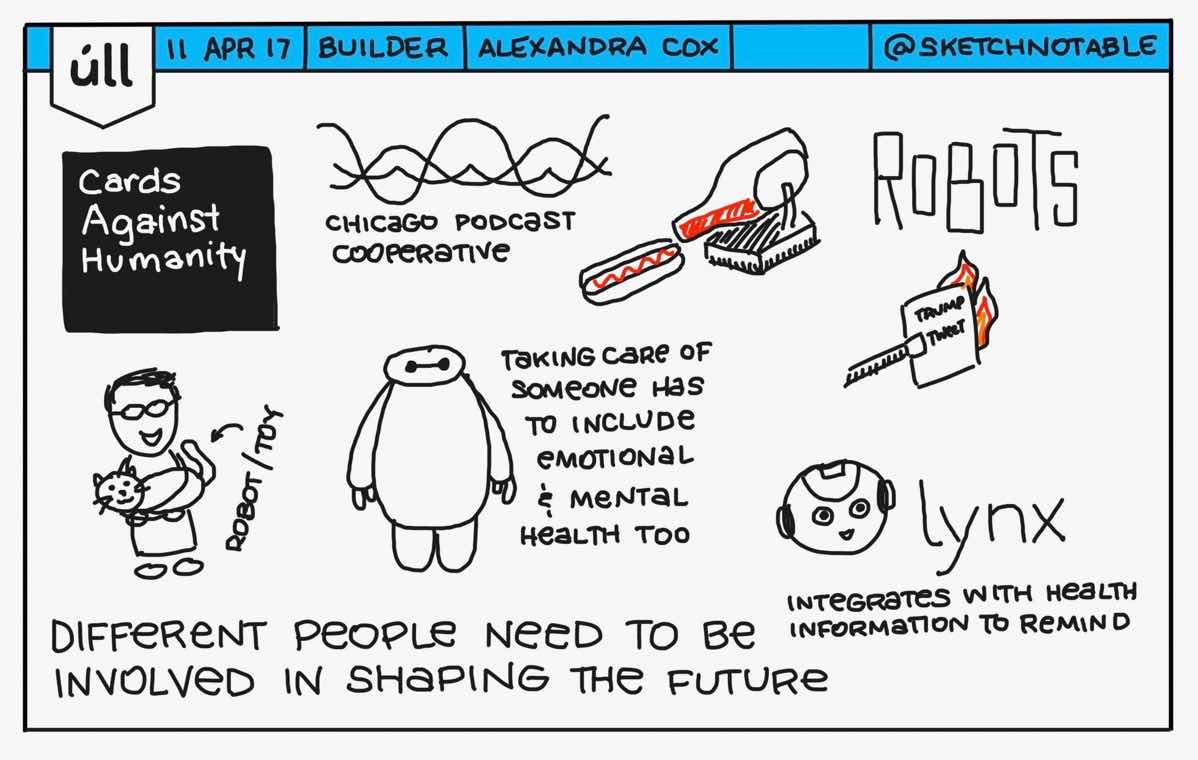 úll
11 APR 17
BUILDER
ALEXANDRA COX
@SKETCHNOTABLE
Cards
Against
Humanity
CHICAGO PODCAST
COOPERATIVE
ROBOTS
TRUMP
TWEET
ROBOT/TOY
TAKING CARE OF
SOMEONE HAS
TO INCLUDE
EMOTIONAL
& MENTAL
HEALTH TOO
lynx
INTEGRATES WITH HEALTH
INFORMATION TO REMIND
DIFFERENT PEOPLE NEED TO BE
INVOLVED IN SHAPING THE FUTURE